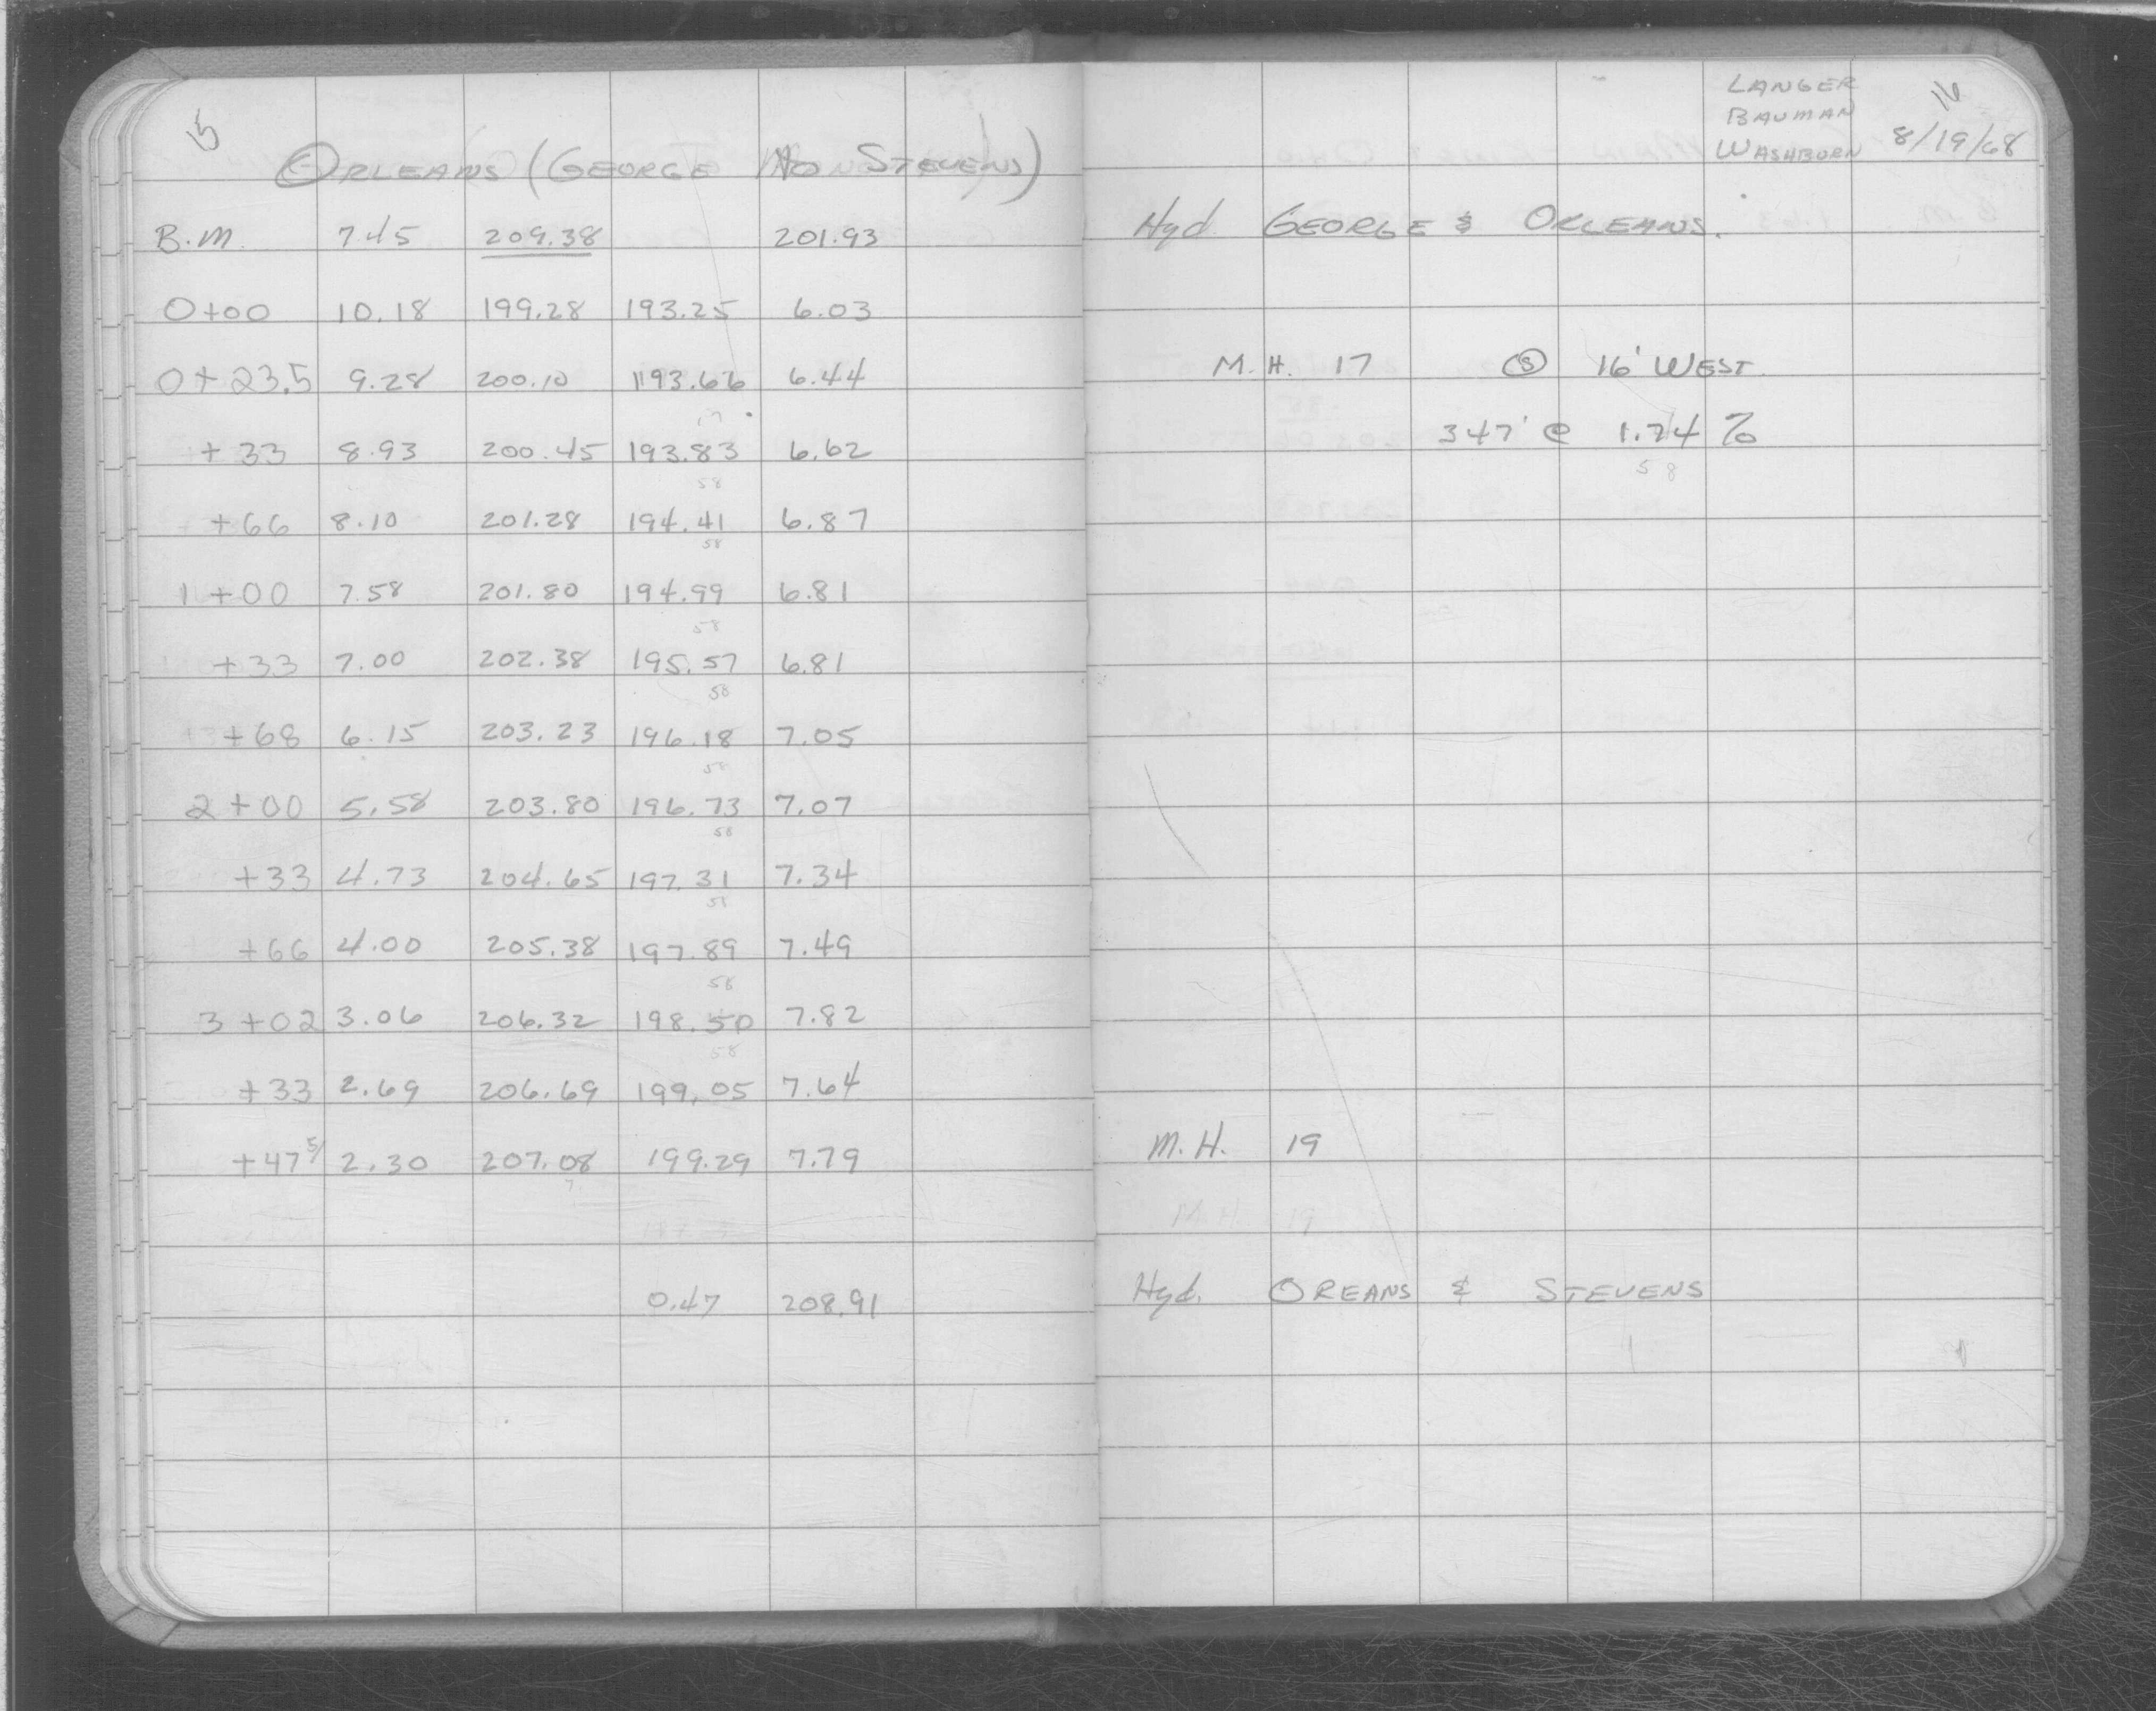 15
ORLEANS (GEORGE TO STEVENS)
B.M. 7.45 209.38 201.93
0+00 10.18 199.28 193.25 6.03
0+23.5 9.28 200.10 193.66 6.44
+33 8.93 200.45 193.83 6.62
58
+66 8.10 201.28 194.41 6.87
58
1+00 7.58 201.80 194.99 6.81
58
+33 7.00 202.38 195.57 6.81
58
+68 6.15 203.23 196.18 7.05
58
2+00 5.58 203.80 196.73 7.07
58
+33 4.73 204.65 197.31 7.34
58
+66 4.00 205.38 197.89 7.49
58
3+02 3.06 206.32 198.50 7.82
58
+33 2.69 206.69 199.05 7.64
+47 5/ 2.30 207.08 199.29 7.79
0.47 208.91
LANGER
BAUMAN
WASHBORN
16
8/19/68
Hyd. GEORGE & ORLEANS.
M.H. 17 (S) 16' WEST.
347' @ 1.74 %
58
M.H. 19
M.H. 19
Hyd. OREANS & STEVENS